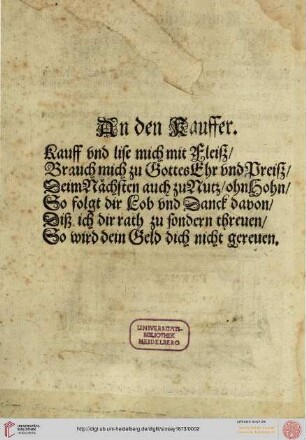 An den Kauffer.
Kauff vnd lise mich mit Fleiß/
Brauch mich zu Gottes Ehr vnd Preiß/
Deim Nächsten auch zu Nutz/ ohn Hohn/
So folgt dir Lob vnd Danck davon/
Diß ich dir rath zu sondern threuen/
So wird dein Geld dich nicht gereuen.
UNIVERSITÄTS-
BIBLIOTHEK
HEIDELBERG
UNIVERSITÄTS-
BIBLIOTHEK
HEIDELBERG